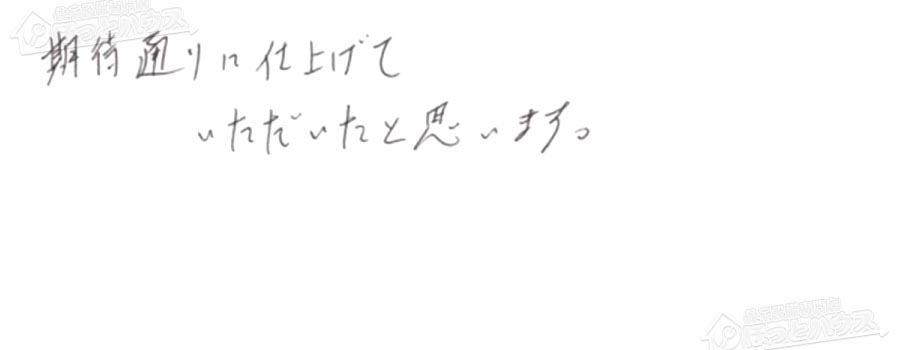 期待通りに仕上げて
いただいたと思います。
ほっとハウス